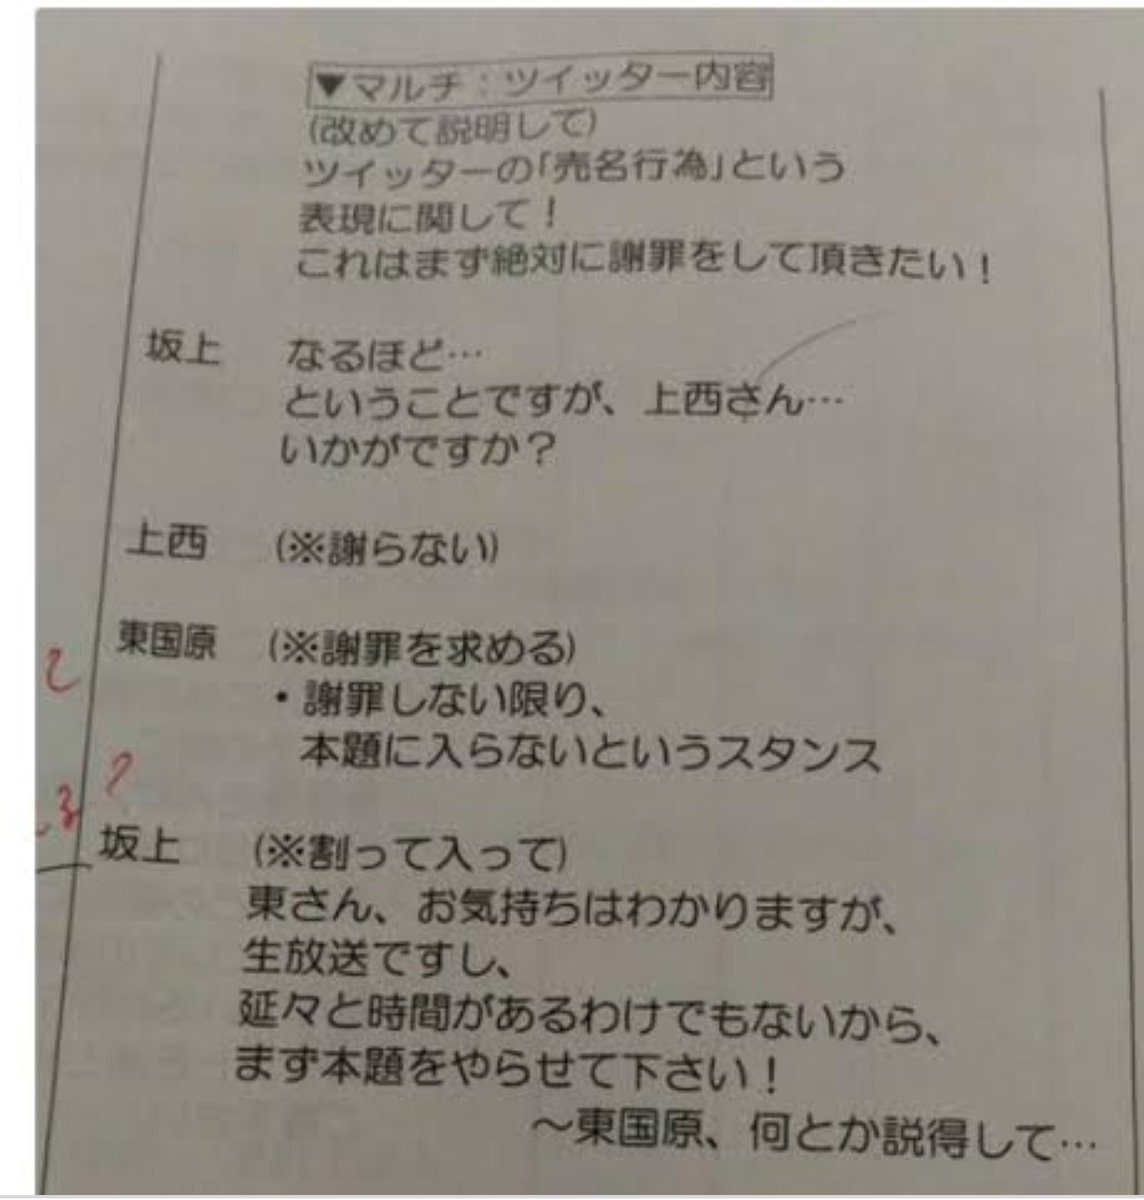 ▼マルチ：ツイッター内容
(改めて説明して)
ツイッターの「売名行為」という
表現に関して！
これはまず絶対に謝罪をして頂きたい！
坂上 なるほど…
ということですが、上西さん…
いかがですか？
上西 (※謝らない)
東国原 (※謝罪を求める)
・謝罪しない限り、
本題に入らないというスタンス
坂上 (※割って入って)
東さん、お気持ちはわかりますが、
生放送ですし、
延々と時間があるわけでもないから、
まず本題をやらせて下さい！
～東国原、何とか説得して…